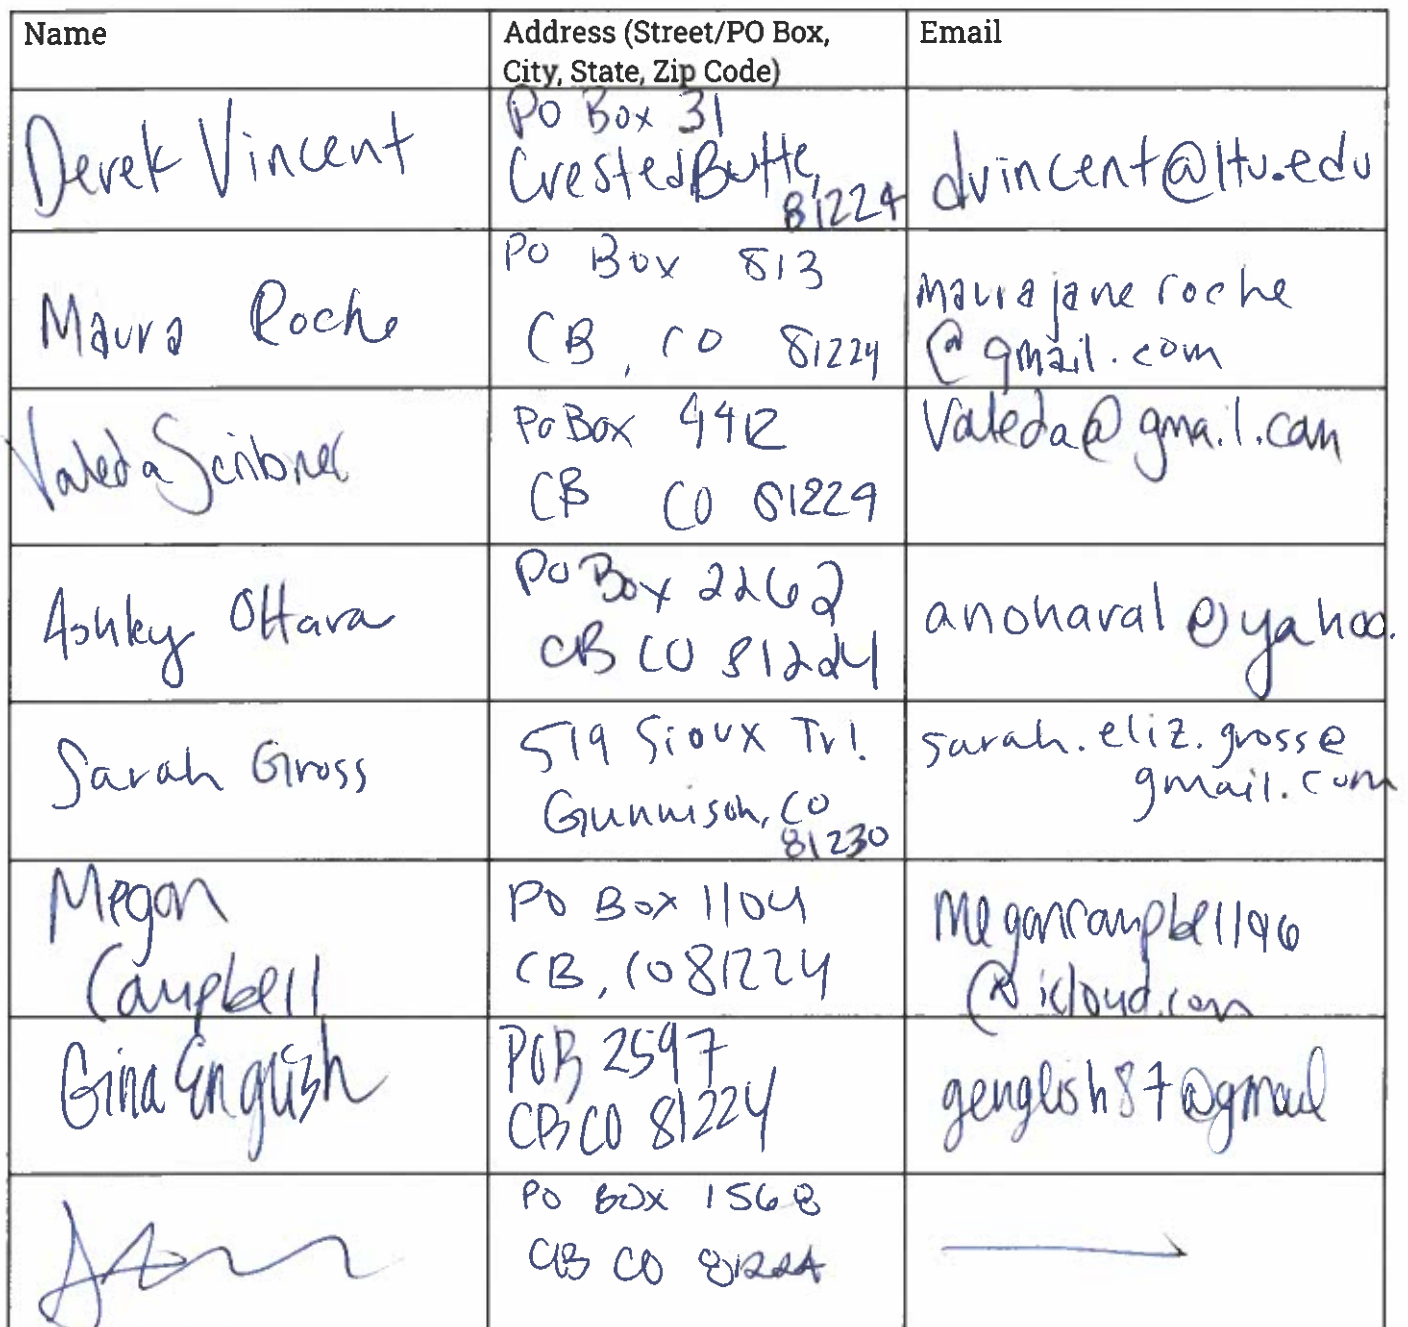 Name
Address (Street/PO Box,
City, State, Zip Code)
Email
Derek Vincent
PO Box 31
Crested Butte,
81224
dvincent@ltu.edu
Maura Roche
PO Box 813
CB, CO 81224
maurajaneroche
@gmail.com
Valeda Scribner
PO Box 4412
CB CO 81224
Valeda@gmail.com
Ashley OHara
PO Box 2262
CB CO 81224
anohara1@yahoo.
Sarah Gross
519 Sioux Trl.
Gunnison, CO
81230
sarah.eliz.gross@
gmail.com
Megan
Campbell
PO Box 1104
CB, CO 81224
megancampbell96
@icloud.com
Gina English
POB 2597
CB CO 81224
genglish87@gmail
PO BOX 1568
CB CO 81224